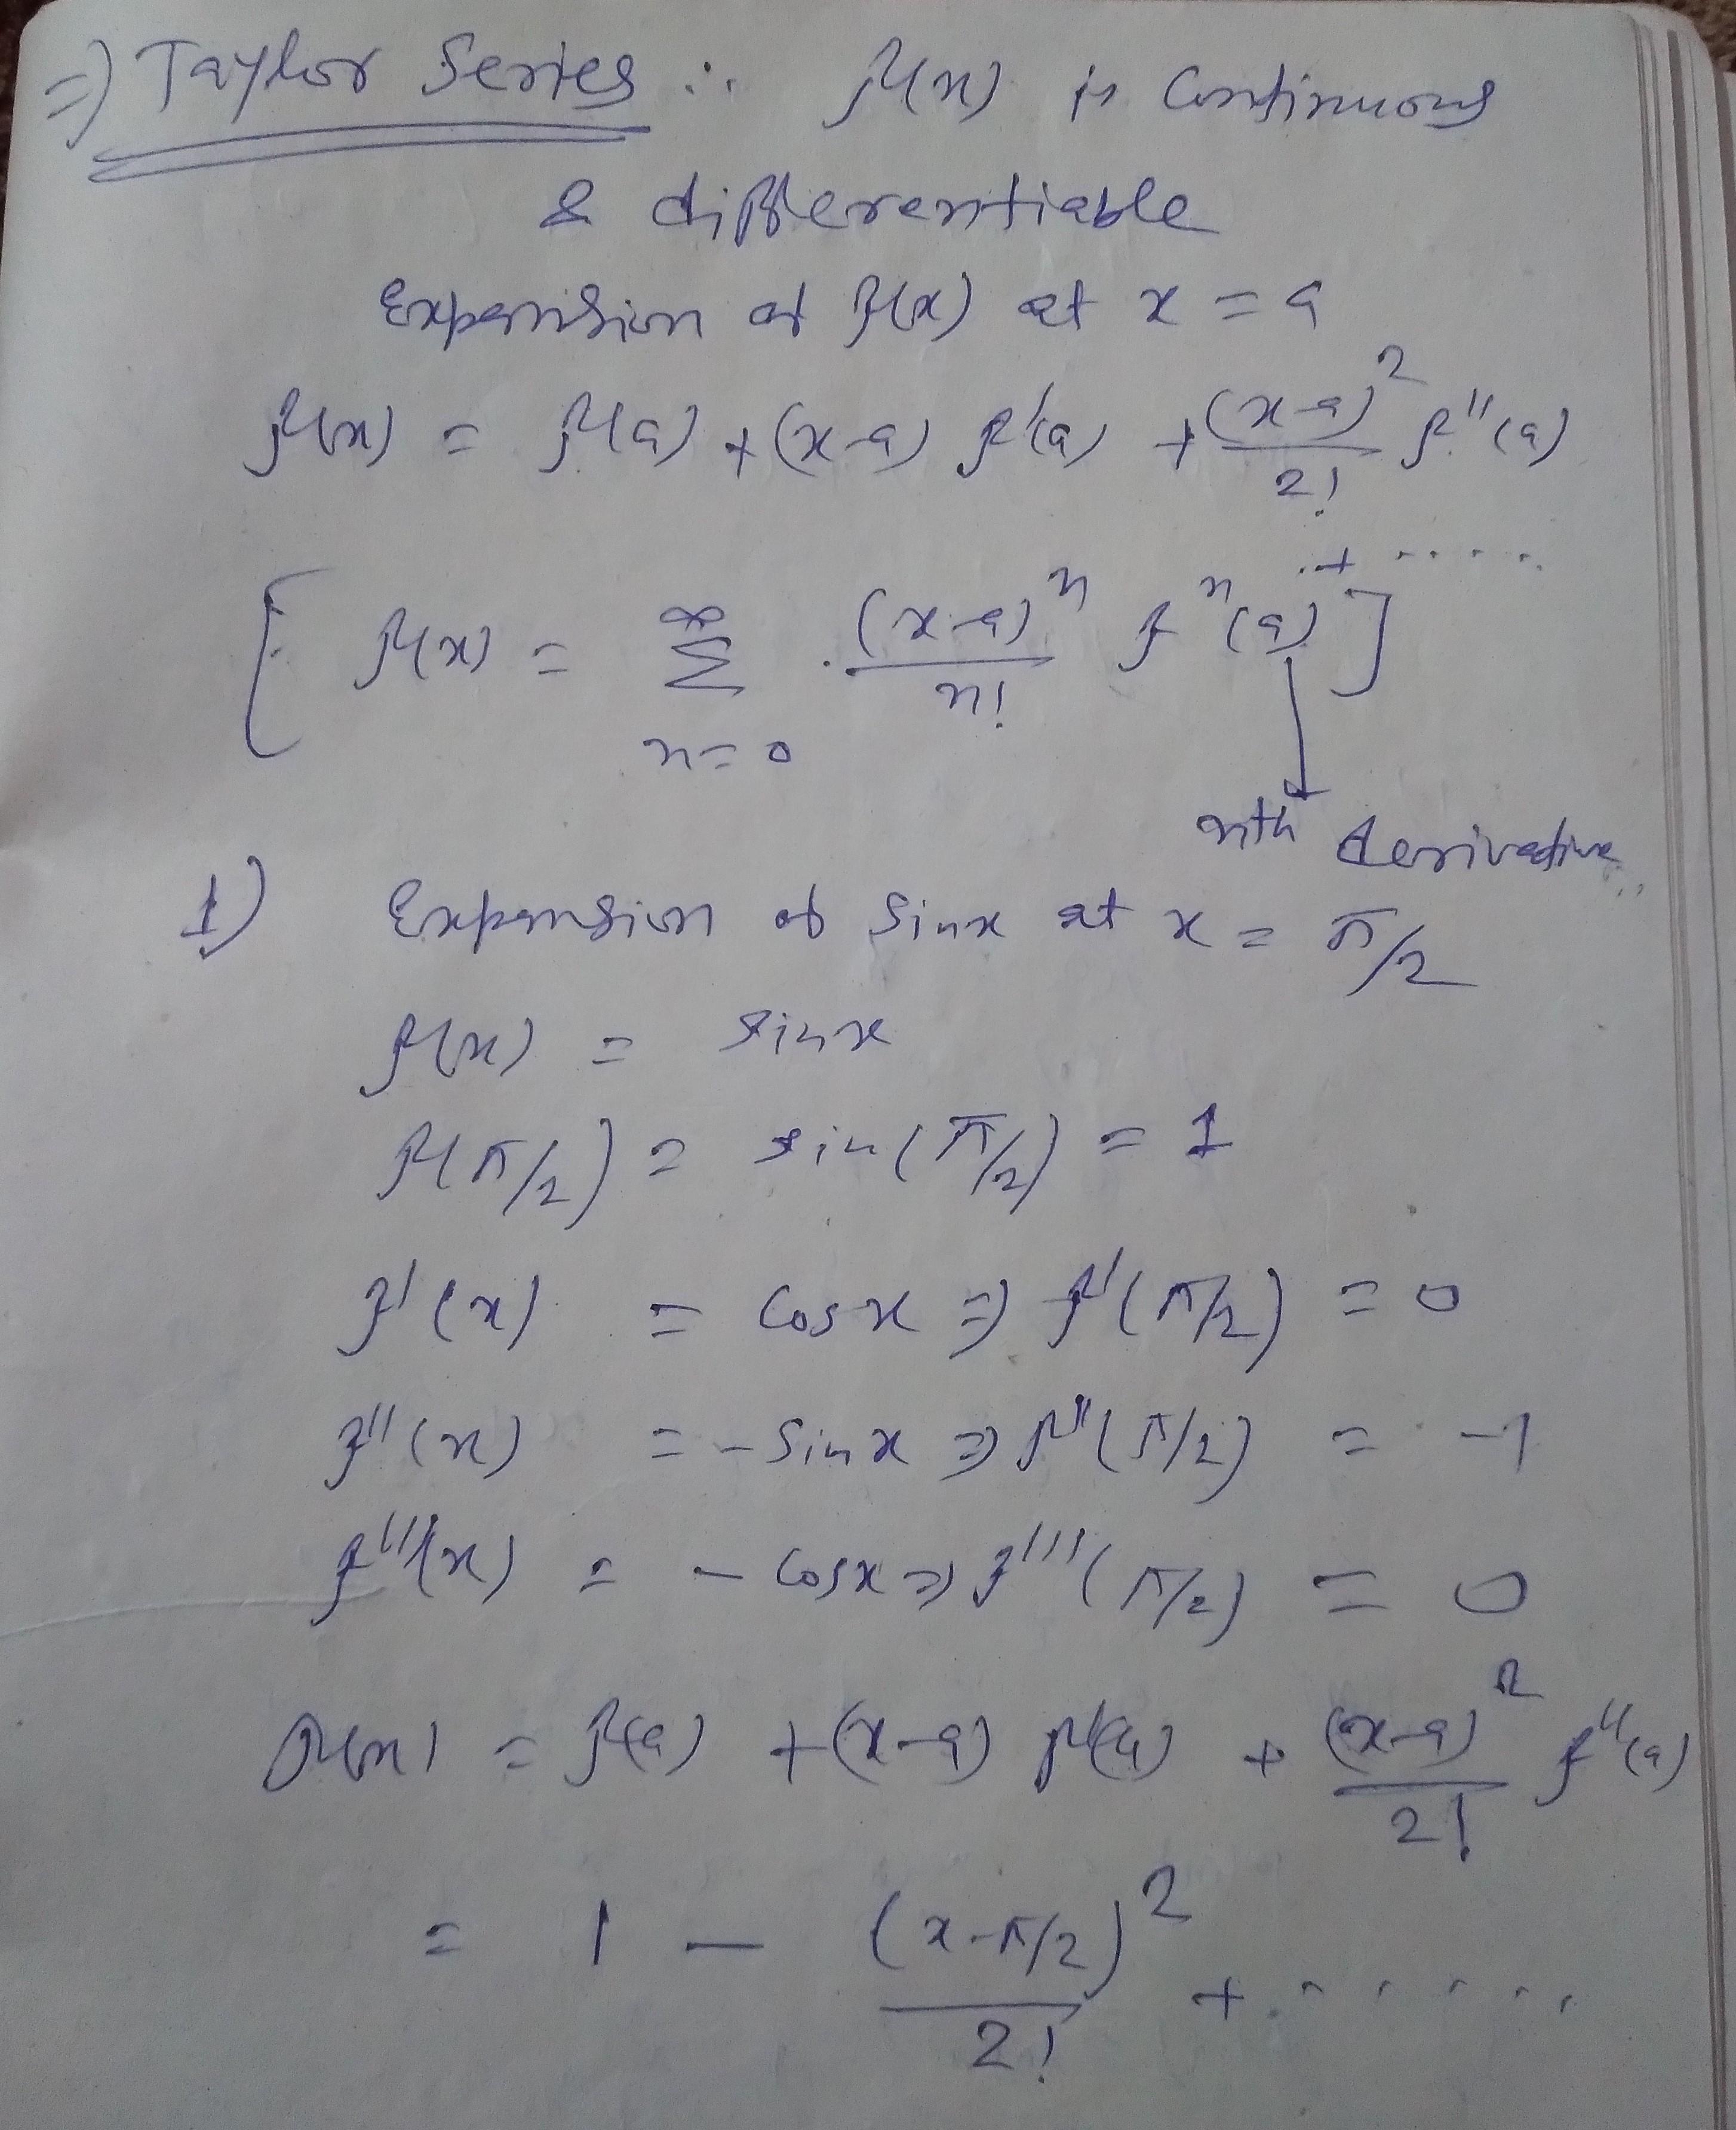 ⇒) Taylor Series :. f(x) is Continuous
& differentiable
Expansion of f(x) at x = a
f(x) = f(a) + (x-a) f'(a) + (x-a)²/2! f''(a)
+ .....
[ f(x) = ∞ Σ n=0 (x-a)ⁿ/n! fⁿ(a) ]
nth derivative
1) Expansion of Sinx at x = π/2
f(x) = sinx
f(π/2) = sin(π/2) = 1
f'(x) = Cosx ⇒ f'(π/2) = 0
f''(x) = -Sinx ⇒ f''(π/2) = -1
f'''(x) = - Cosx ⇒ f'''(π/2) = 0
f(x) = f(a) + (x-a) f'(a) + (x-a)²/2! f''(a)
= 1 - (x-π/2)²/2! + ......